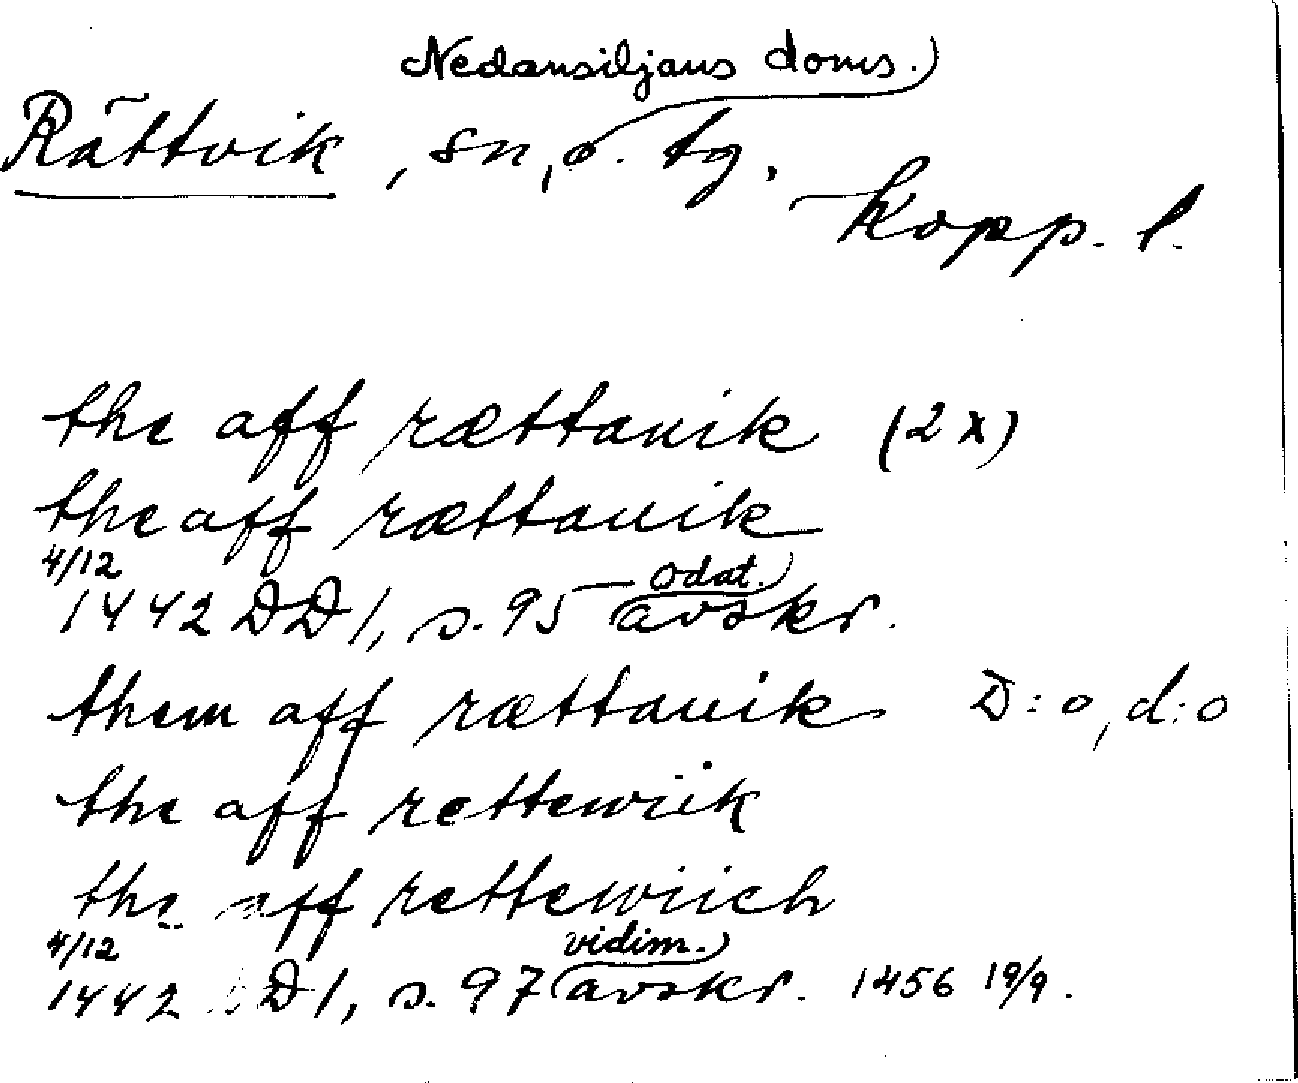 Nedansiljans doms.)
Rättvik, sn, o. tg.
Kopp. l.
the aff rættauik (2 x)
the aff rættauik
4/12
odat.)
1442 DD 1, s. 95 avskr.
them aff rættauik D:o, d:o
the aff rettewiik
the aff rettewiich
4/12
vidim.)
1442 DD 1, s. 97 avskr. 1456 19/9.